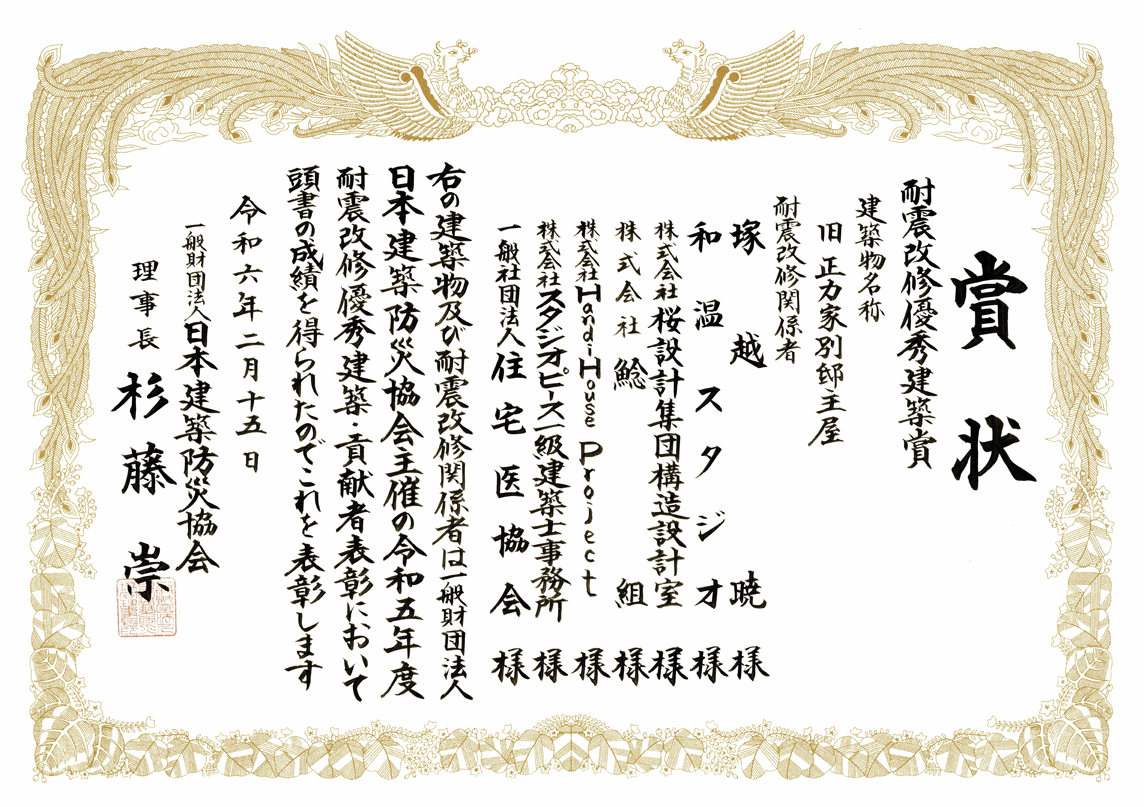 賞状
耐震改修優秀建築賞
建築物名称
旧正力家別邸主屋
耐震改修関係者
塚越暁様
和温スタジオ様
株式会社桜設計集団構造設計室様
株式会社鯰組様
株式会社HandiHouse Project様
株式会社スタジオピース一級建築士事務所様
一般社団法人住宅医協会様
右の建築物及び耐震改修関係者は一般財団法人
日本建築防災協会主催の令和五年度
耐震改修優秀建築・貢献者表彰において
頭書の成績を得られたのでこれを表彰します
令和六年二月十五日
一般財団法人日本建築防災協会
理事長杉藤崇